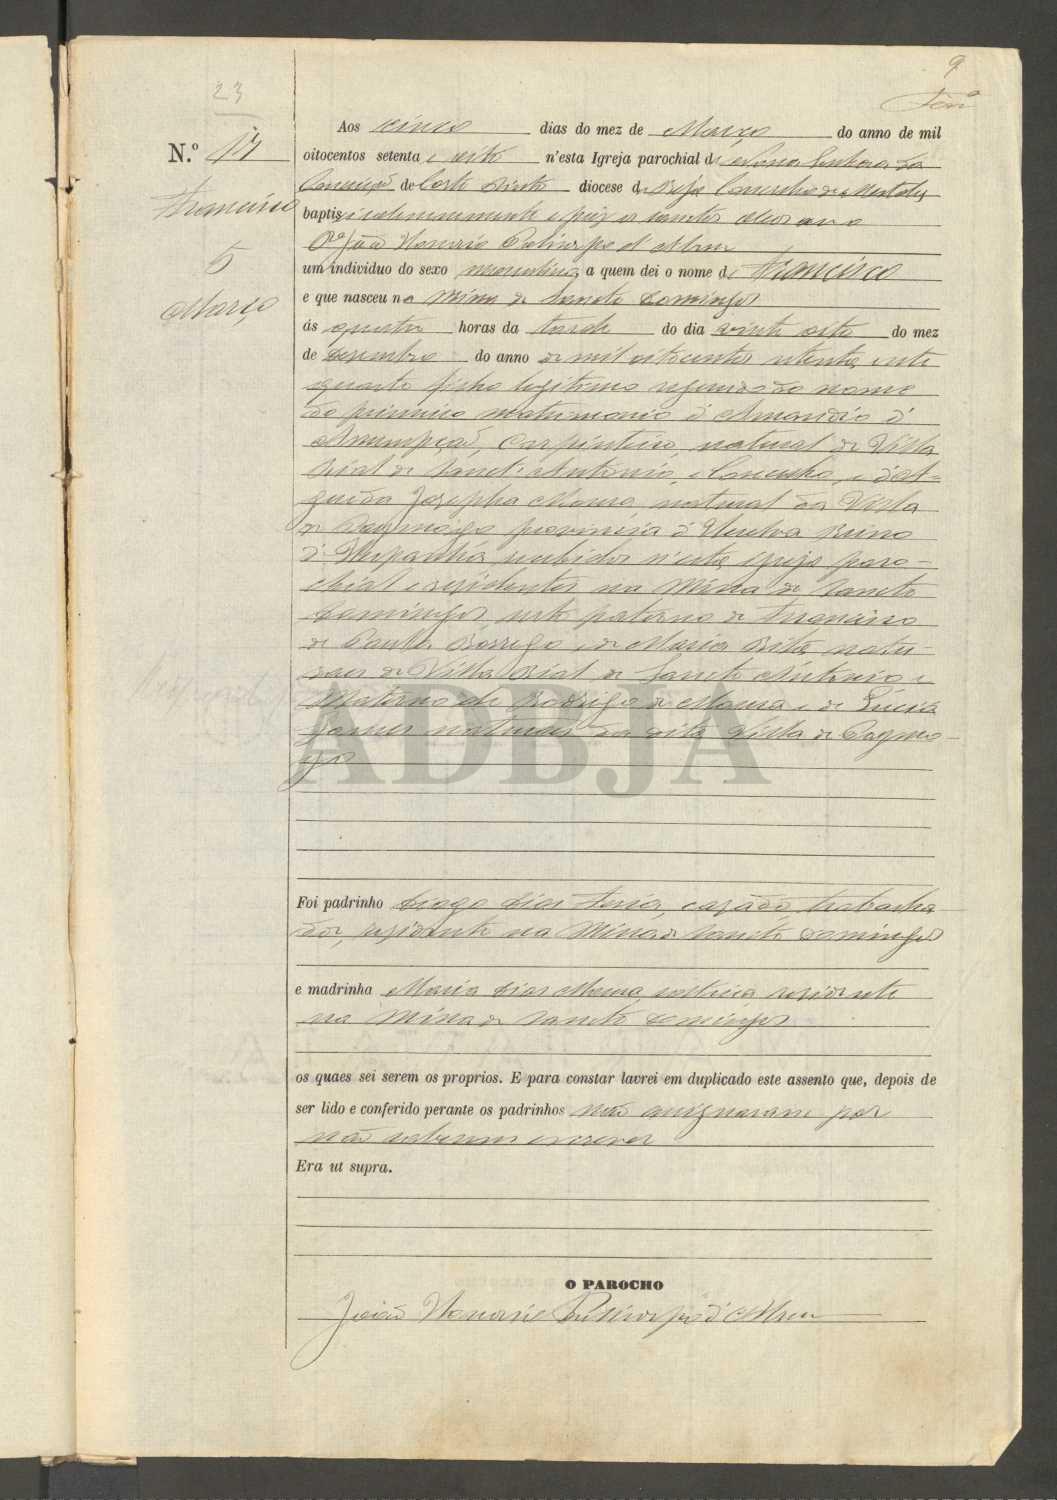 9
23
N.º 17
Francisco
5
Março
Aos cinco dias do mez de Março do anno de mil
oitocentos setenta e oito n'esta Igreja parochial de Nossa Senhora da
Conceição de Corte do Pinto diocese de Beja Concelho de Mertola,
baptisei solemnemente e puz os sanctos oleos
João Policarpo d'
um individuo do sexo masculino a quem dei o nome de Francisco
e que nasceu na Mina de Sancto Domingos
ás quatro horas da tarde do dia vinte oito do mez
de Dezembro do anno de mil oitocentos setenta e sete
quarto filho legitimo segundo do nome
do primeiro matrimonio d'Amandio d'
Assumpção, carpinteiro, natural de Villa
Rial de Sancto Antonio, e Concelho, e
Josepha Moura, natural da Villa
de Paymôgo provincia d'Huelva Reino
d'Hespanha, recebidos n'esta igreja paro-
chial e residentes na Mina de Sancto
Domingos, neto paterno de Francisco
de Paula Borrego e de Maria Rita, natu-
raes de Villa Rial de Sancto Antonio e
Materno de Rodrigo de Moura e de Lucia
Gomes naturaes da dita Villa de Paymo-
go
ADBJA
Foi padrinho Diogo Dias Feria, cazado, trabalha
dor, residente na Mina de Sancto Domingos
e madrinha Maria Dias Moura, solteira residente
na Mina de Sancto Domingos
os quaes sei serem os proprios. E para constar lavrei em duplicado este assento que, depois de
ser lido e conferido perante os padrinhos não assignaram por
não saberem escrever
Era ut supra.
O PAROCHO
João Policarpo d'